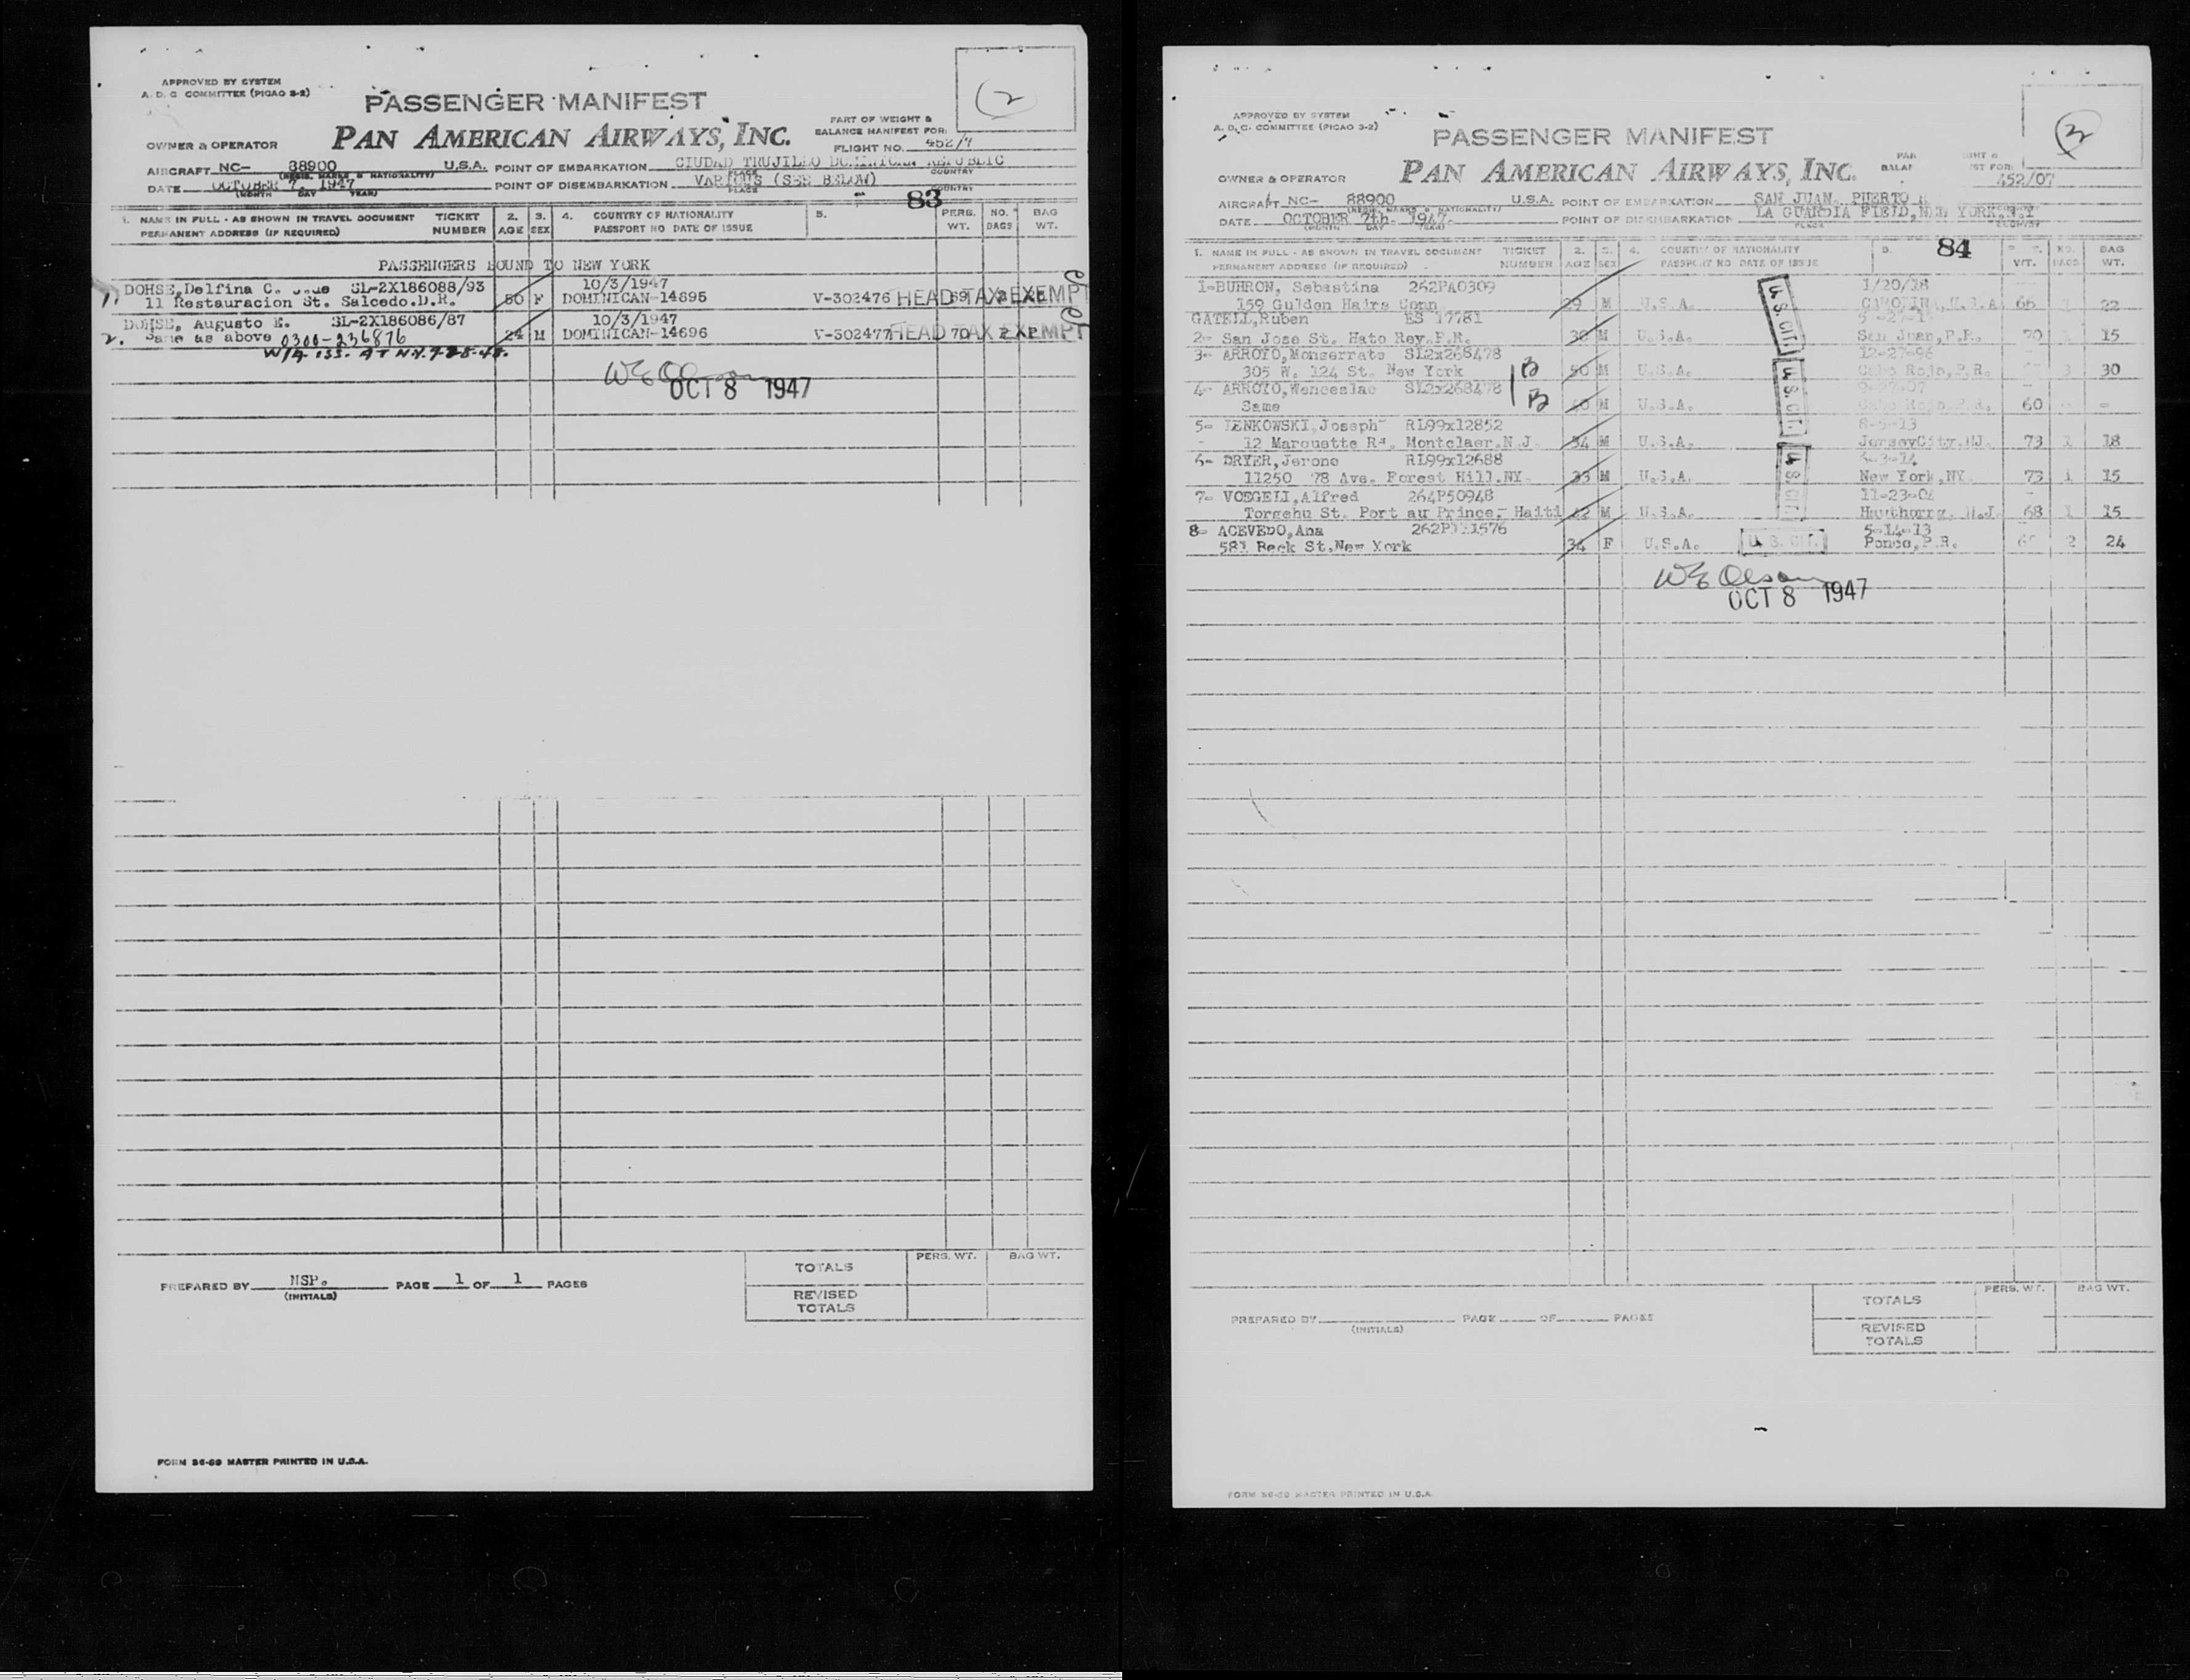 APPROVED BY SYSTEM
A. D. C. COMMITTEE (PICAO S-2)
2
PASSENGER MANIFEST
PAN AMERICAN AIRWAYS, INC.
PART OF WEIGHT &
BALANCE MANIFEST FOR:
OWNER & OPERATOR
FLIGHT NO. 452/7
AIRCRAFT NC- 88900 U.S.A. POINT OF EMBARKATION CIUDAD TRUJILLO DOMINICAN REPUBLIC
(REGIS. MARKS & NATIONALITY) PLACE COUNTRY
DATE OCTOBER 7, 1947 POINT OF DISEMBARKATION VARIOUS (SEE BELOW)
(MONTH DAY YEAR) PLACE COUNTRY
83
1. NAME IN FULL - AS SHOWN IN TRAVEL DOCUMENT TICKET 2. 3. 4. COUNTRY OF NATIONALITY 5. PERS. NO. BAG
PERMANENT ADDRESS (IF REQUIRED) NUMBER AGE SEX PASSPORT NO DATE OF ISSUE WT. BAGS WT.
PASSENGERS BOUND TO NEW YORK
1. DOHSE, Delfina C. SL-2X186088/93 10/3/1947
11 Restauracion St. Salcedo.D.R. 50 F DOMINICAN-14695 V-302476 HEAD TAX EXEMPT
DOHSE, Augusto E. SL-2X186086/87 10/3/1947
2. Same as above 0300-236876 24 M DOMINICAN-14696 V-302477 HEAD TAX EXEMPT 70 2
W/A ISS. AT N.Y. 9-28-48.
OCT 8 1947
PREPARED BY NSP. PAGE 1 OF 1 PAGES
(INITIALS)
PERS. WT. BAG WT.
TOTALS
REVISED
TOTALS
FORM 36-60 MASTER PRINTED IN U.S.A.
APPROVED BY SYSTEM
A. D. C. COMMITTEE (PICAO S-2)
2
PASSENGER MANIFEST
PAN AMERICAN AIRWAYS, INC.
OWNER & OPERATOR
452/07
AIRCRAFT NC- 88900 U.S.A. POINT OF EMBARKATION SAN JUAN, PUERTO R
(REGIS. MARKS & NATIONALITY)
DATE OCTOBER 7th. 1947. POINT OF DISEMBARKATION LA GUARDIA FIELD, NEW YORK, N.Y
(MONTH DAY YEAR) PLACE COUNTRY
84
1. NAME IN FULL - AS SHOWN IN TRAVEL DOCUMENT TICKET 2. 3. 4. COUNTRY OF NATIONALITY 5. NO. BAG
PERMANENT ADDRESS (IF REQUIRED) NUMBER AGE SEX PASSPORT NO DATE OF ISSUE WT. BAGS WT.
1-BUHRON, Sebastina 262PA0309 1/20/18
159 Gulden Hairs Conn 29 M U.S.A. U.S. CIT. CAROLINA, U.S.A 66 1 22
GATELL,Ruben ES 17781
2- San Jose St. Hato Rey.P.R. 30 M U.S.A. San Juan,P.R. 70 15
3- ARROYO,Monserrate SL2x268478 12-27-96
305 W. 124 St. New York 50 M U.S.A. U.S. CIT. Cabo Rojo,P.R. 3 30
4- ARROYO,Wenceslao SL2x268478 B B
Same 40 M U.S.A. Cabo Rojo,P.R. 60 - -
5- IENKOWSKI,Joseph RL99x12852 8-5-13
12 Marquette Rd. Montclaer.N.J. 34 M U.S.A. JerseyCity.NJ. 73 1 18
6- DRYER,Jerone RL99x12688 4-3-14
11250 78 Ave. Forest Hill.NY. 33 M U.S.A. U.S. CIT. New York,NY. 73 1 15
7- VOEGELI,Alfred 264P50948 11-23-04
Torgehu St. Port au Prince,- Haiti 42 M U.S.A. Hawthorng, N.J. 68 1 15
8- ACEVEDO,Ana 5-14-13
581 Beck St,New York 34 F U.S.A. U. S. CIT. Ponce,P.R. 2 24
WE Olsan
OCT 8 1947
PREPARED BY PAGE OF PAGES
(INITIALS)
PERS. WT. BAG WT.
TOTALS
REVISED
TOTALS
FORM 36-60 MASTER PRINTED IN U.S.A.